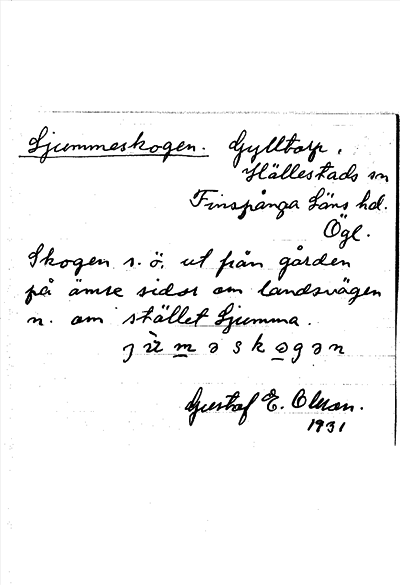 Ljummeskogen. Gylltorp,
Hällestads sn
Finspånga Läns hd.
Ögl.
Skogen s. ö. ut från gården
på ömse sidor om landsvägen
n. om stället Ljumma.
Gustaf E. Olson.
1931